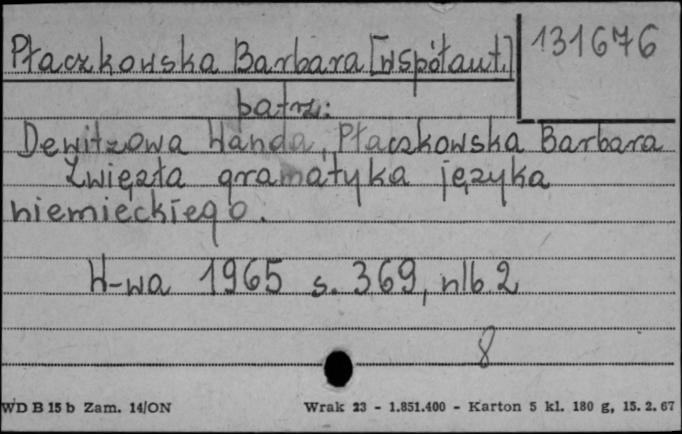 Płaczkowska Barbara [współaut.] 131676
patrz:
Dewitzowa Wanda, Płaczkowska Barbara
Zwięzła gramatyka języka
niemieckiego.
W-wa 1965 s. 369, nlb 2
8
WD B 15 b Zam. 14/ON Wrak 23 - 1.851.400 - Karton 5 kl. 180 g, 15. 2. 67